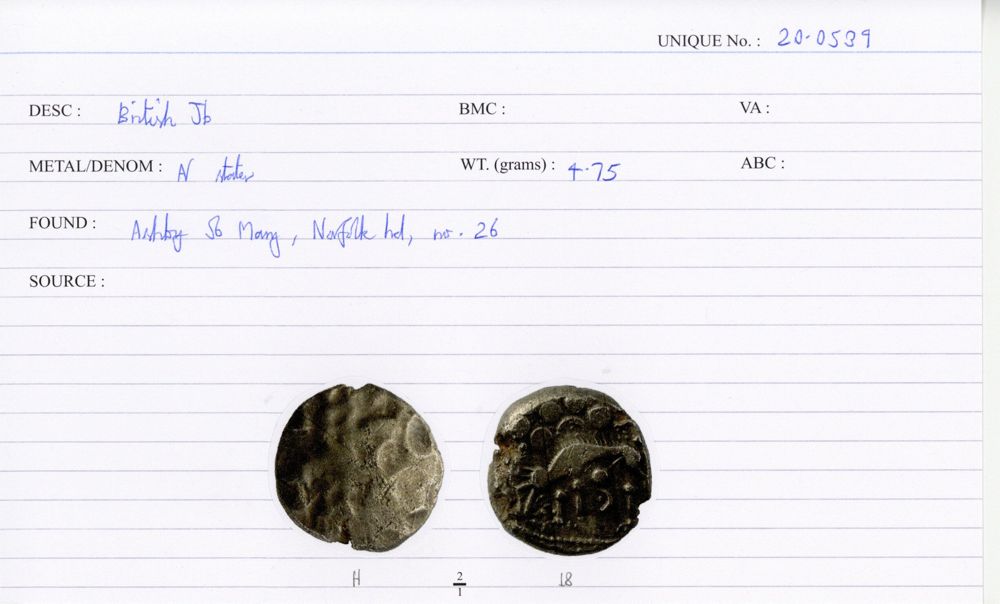 UNIQUE No. : 20-0539
DESC : British Jb BMC : VA :
METAL/DENOM : N stater WT. (grams) : 4.75 ABC :
FOUND : Ashby St Mary, Norfolk hd, no. 26
SOURCE :
H 2/1 18